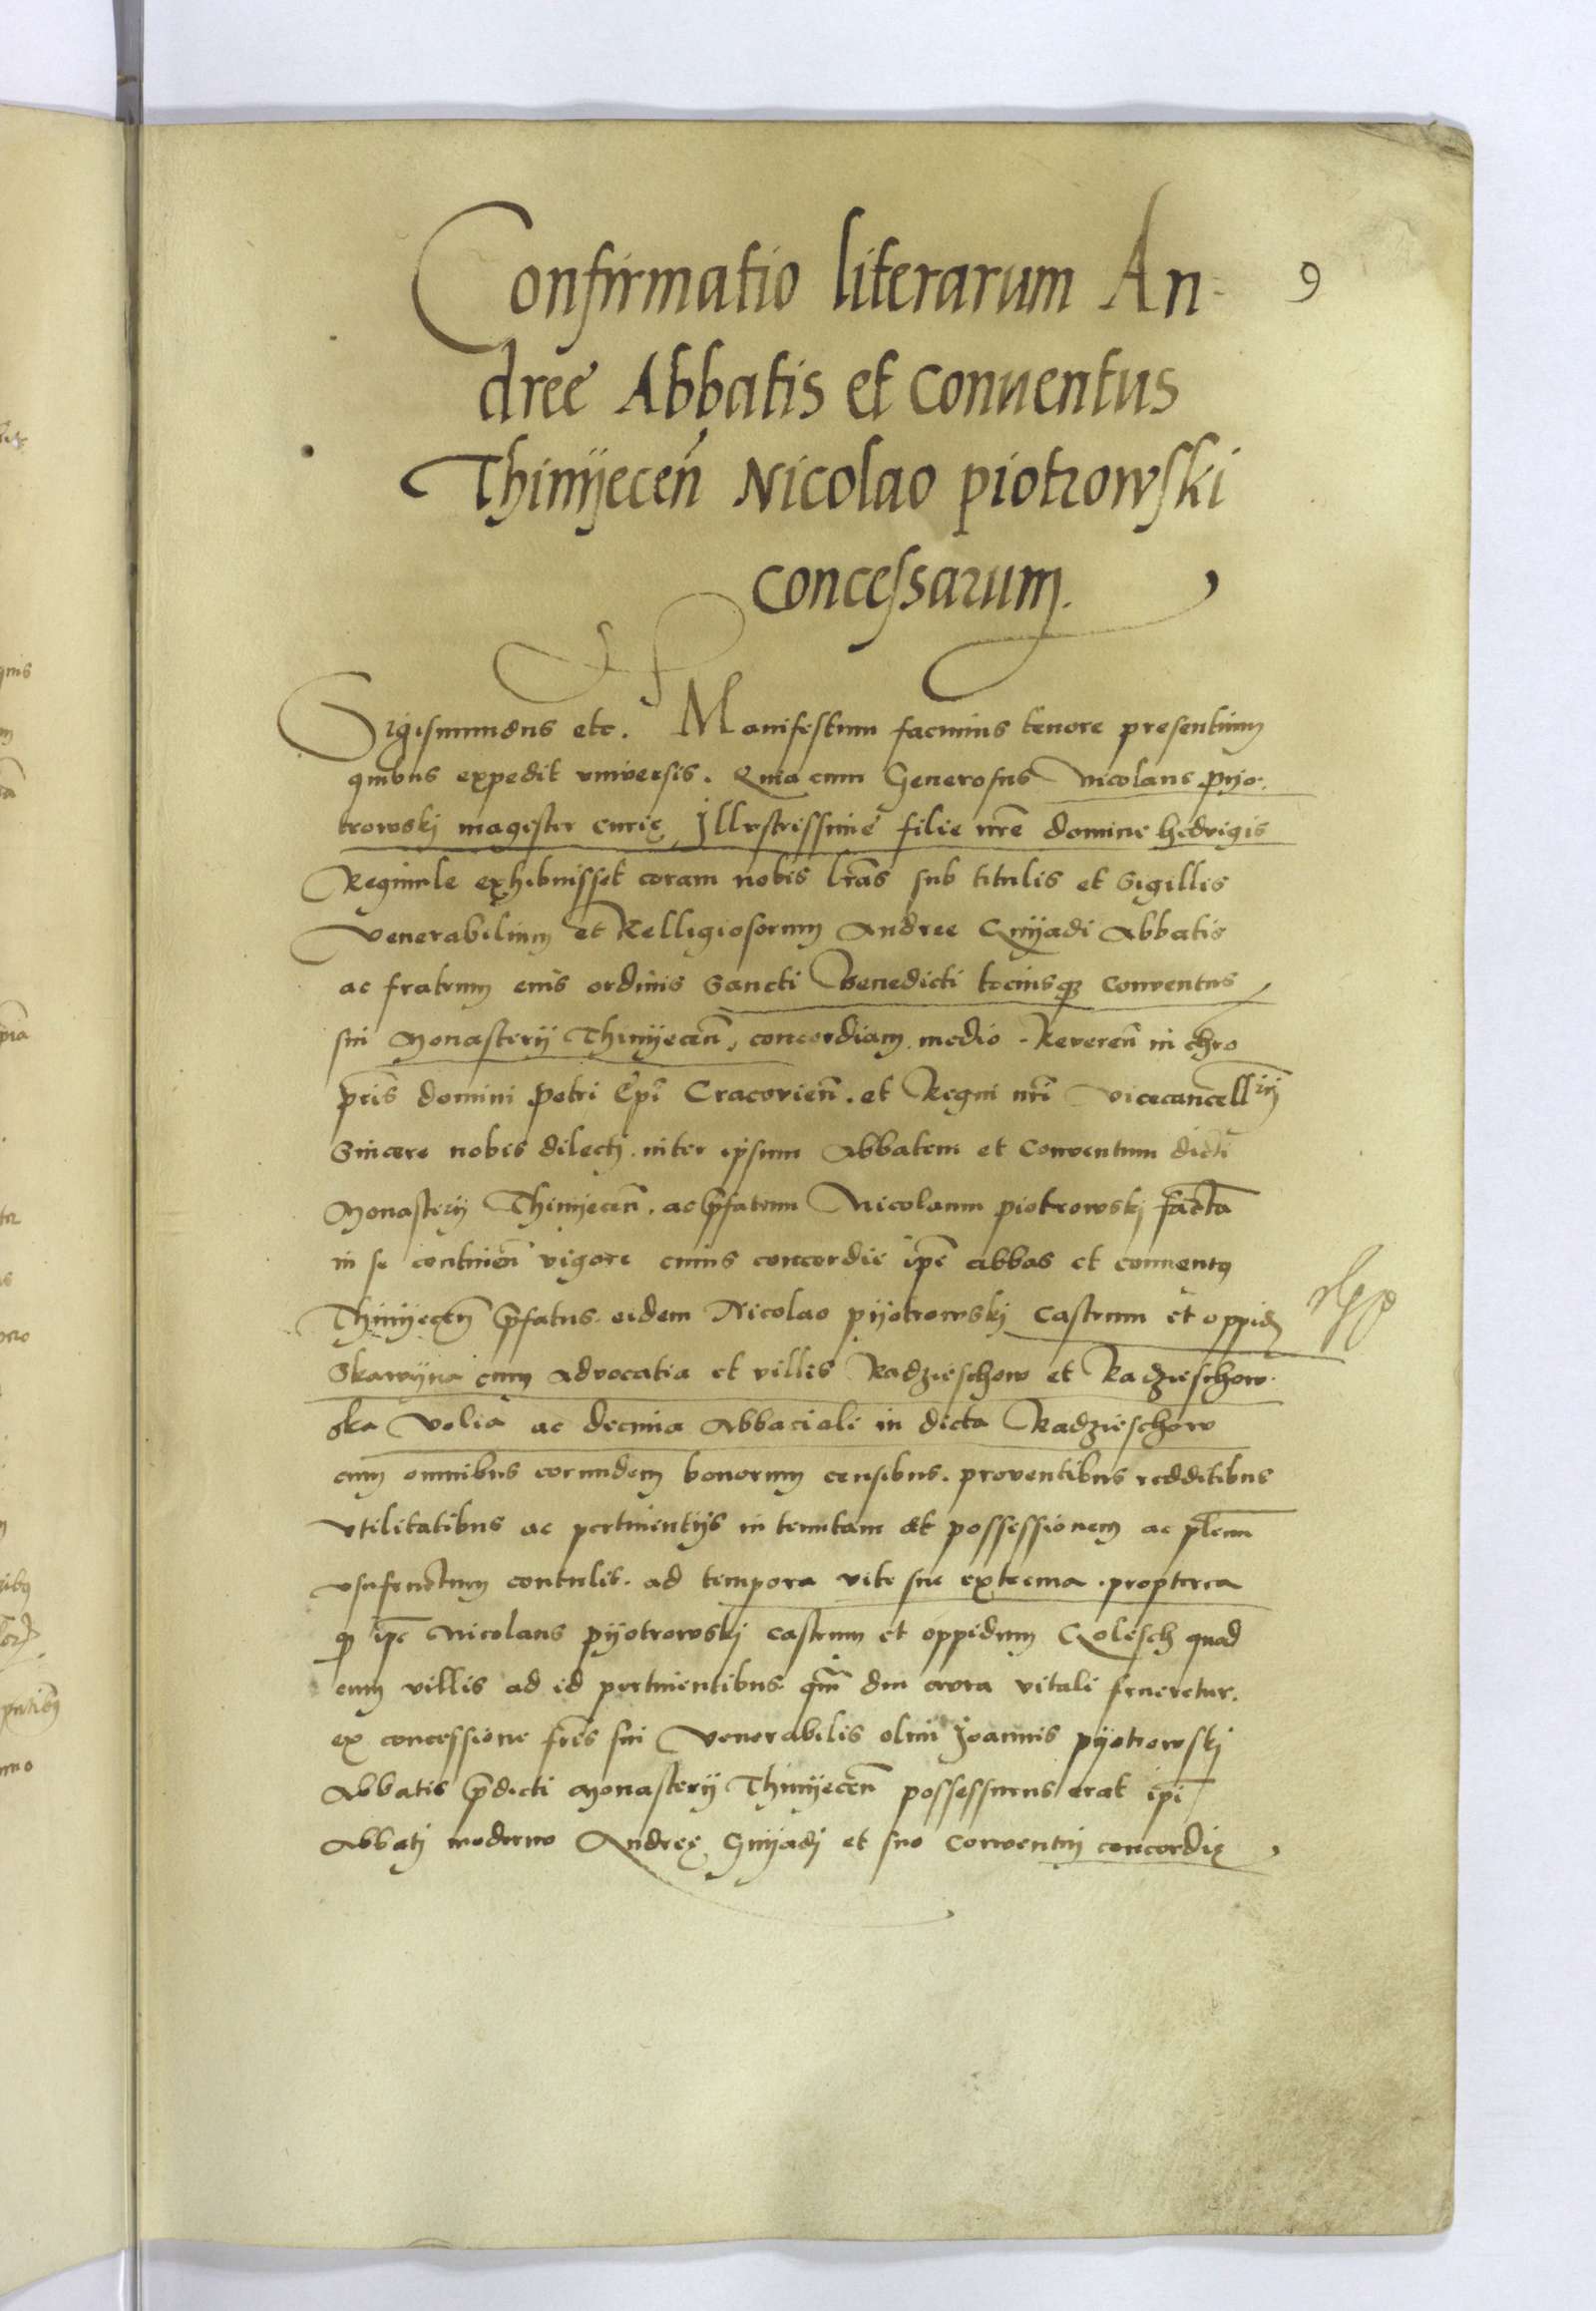 Confirmatio literarum An-
9
dree Abbatis et Conuentus
Thinijeceñ Nicolao piotrowski
concessarum.
Sigismundus etc. Manifestum facimus tenore presentium
quibus expedit vniversis. Quia cum Generosus Nicolaus Pijo-
trowskj magister curię Illvstrissime filie nr̃e domine hedvigis
Reginule exhibuisset coram nobis lr̃as sub titulis et Sigillis
Venerabilium et Relligiosorum Andree Abbatis
ac fratrum eius ordinis Sancti Benedicti tociusqꝫ Conventus
sui Monasterij Thinijeceñ, concordiam medio Revereñ in chro
pr̃is domini Petri Ep̃i Cracovieñ. et Regni nr̃i Vicecancellrij
Sincere nobis dilectj. inter ipsum Abbatem et Conventum dicti
Monasterij Thinijeceñ. ac p̃fatum Nicolaum piotrowskj facta
in se contineñ vigore cuius concordie ip̃e abbas et conuentus
Thinijeceñ p̃fatus eidem Nicolao pijotrowskj Castrum et oppid
Skawijna cum Advocatia et villis Radzieschow et Radzieschow-
ska Volia ac decima Abbaciali in dicta Radzieschow
cum omnibus eorundem bonorum censibus. proventibus redditibus
Vtilitatibus ac pertinentijs in tenutam et possessionem ac plenu
vsufructum contulis. ad tempora vite sue extrema. propterea
ip̃e Nicolaus pijotrowskj castrum et oppidum Colesch quod
cum villis ad id pertinentibus vitali frueretur.
ex concessione fr̃is sui Venerabilis olim Joannis pijotrowskj
Abbatis p̃dicti Monasterij Thinijeceñ possessurus erat ip̃i
Abbatj moderno Andreę et suo Conventuj concordię